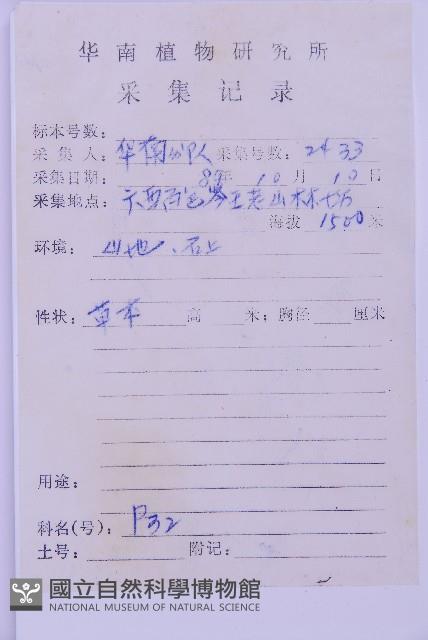 华南植物研究所
采集记录
标本号数：
采集人：华南分队 采集号数：2433
采集日期： 89年10月10日
采集地点：广西百色岑王老山林场
海拔 1500米
环境：山地、石上
性状：草本 高 米；胸径 厘米
用途：
科名(号)：P32
土号： 附记：
國立自然科學博物館
NATIONAL MUSEUM OF NATURAL SCIENCE